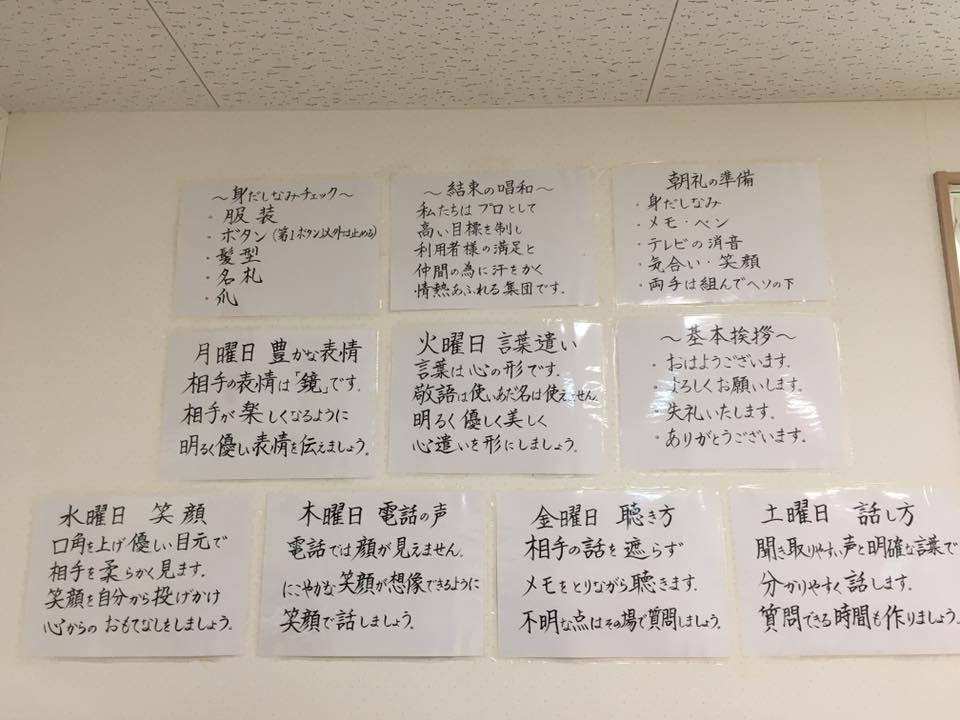 ～身だしなみチェック～
・服装
・ボタン(第1ボタン以外は止める)
・髪型
・名札
・爪
～結束の唱和～
私たちはプロとして
高い目標を制し
利用者様の満足と
仲間の為に汗をかく
情熱あふれる集団です。
朝礼の準備
・身だしなみ
・メモ・ペン
・テレビの消音
・気合い・笑顔
・両手は組んでヘソの下
月曜日 豊かな表情
相手の表情は「鏡」です。
相手が楽しくなるように
明るく優しい表情を伝えましょう。
火曜日 言葉遣い
言葉は心の形です。
敬語は使いあだ名は使えません
明るく優しく美しく
心遣いを形にしましょう。
～基本挨拶～
・おはようございます。
・よろしくお願いします。
・失礼いたします。
・ありがとうございます。
水曜日 笑顔
口角を上げ優しい目元で
相手を柔らかく見ます。
笑顔を自分から投げかけ
心からのおもてなしをしましょう。
木曜日 電話の声
電話では顔が見えません。
にこやかな笑顔が想像できるように
笑顔で話しましょう。
金曜日 聴き方
相手の話を遮らず
メモをとりながら聴きます。
不明な点はその場で質問しましょう。
土曜日 話し方
聞き取りやすい声と明確な言葉で
分かりやすく話します。
質問できる時間も作りましょう。